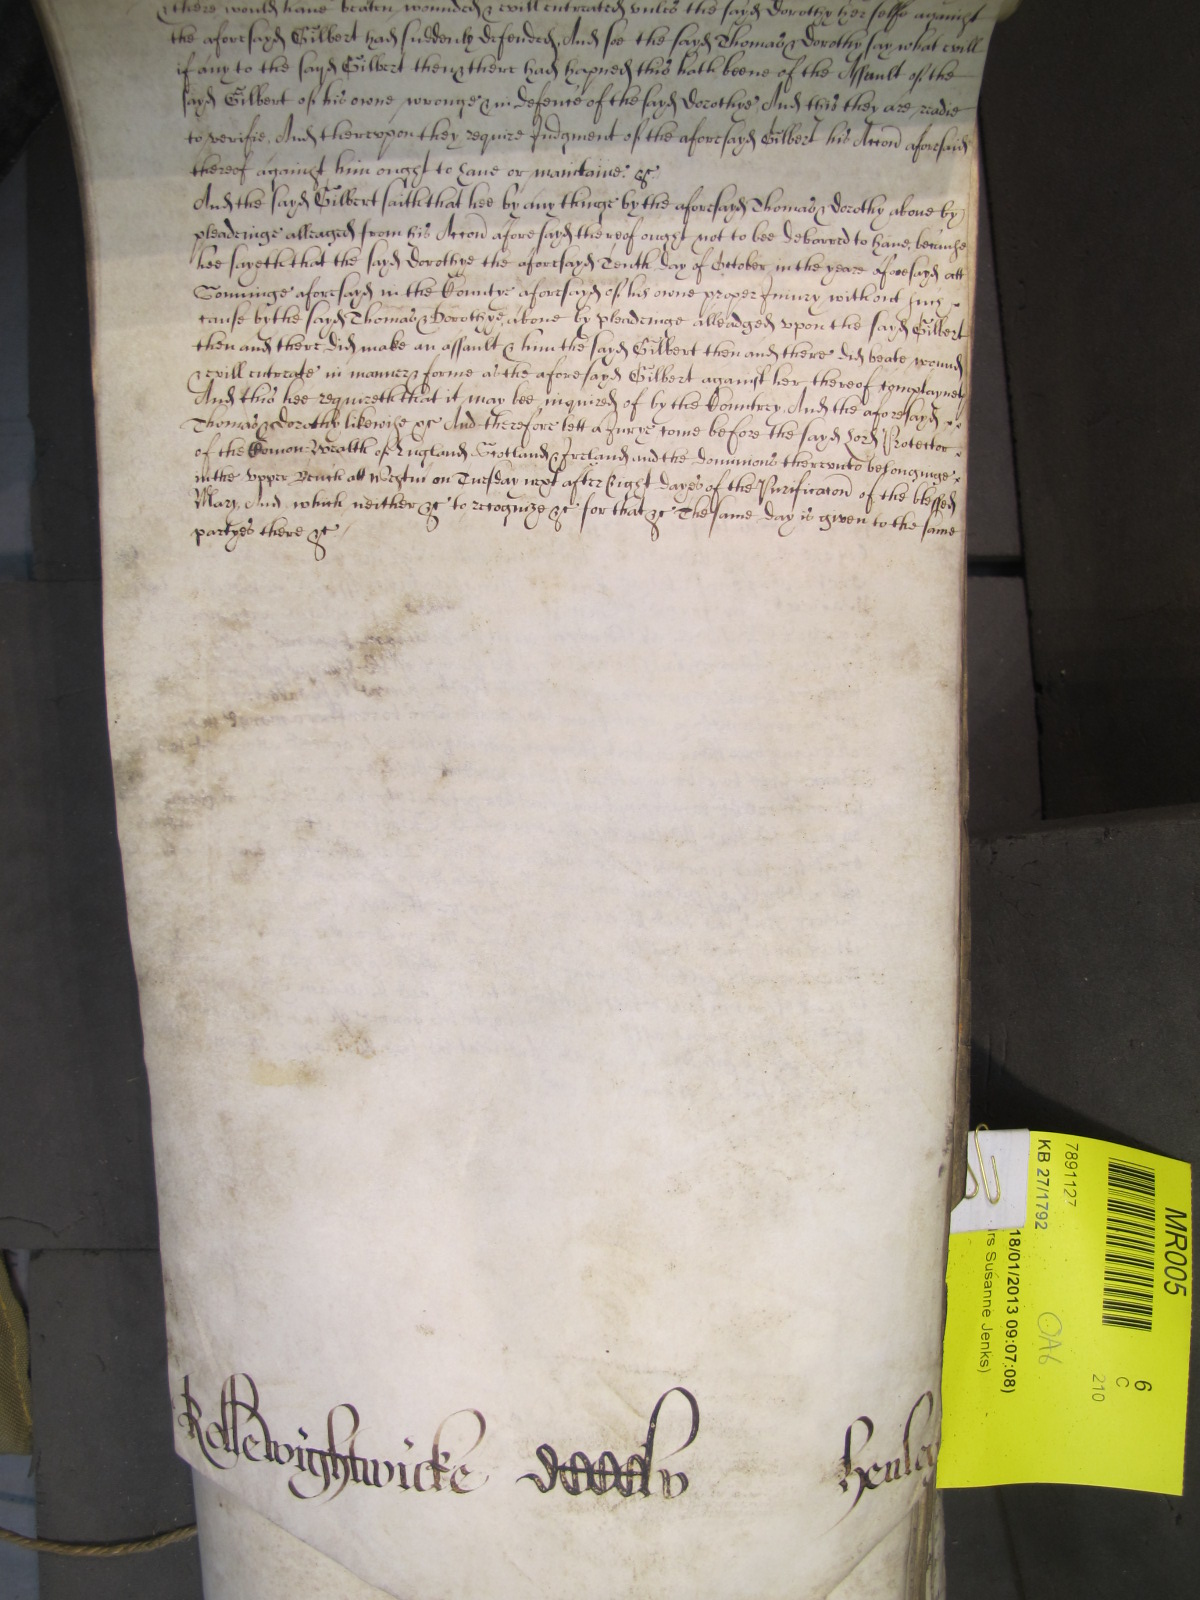 & there would have beaten wounded & evill entreated unles the sayd Dorothy her selfe against
the aforesayd Gilbert had suddenly defended, And soe the sayd Thomas & Dorothy say, what evill
if any to the sayd Gilbert then & there had hapned this hath beene of the Assault of the
sayd Gilbert of his owne wronge & in defence of the sayd Dorothye, And this they are readie
to verifie, And thereupon they require Judgment of the aforesayd Gilbert his Accon aforesaid
thereof against him ought to have or maintaine &c
And the sayd Gilbert saith that hee by any thinge by the aforesayd Thomas & Dorothy above by
pleadeinge alleaged from his Accon aforesayd thereof ought not to bee debarred to have, because
hee sayeth that the sayd Dorothye the aforesayd Tenth day of October in the yeare aforesayd att
Sonninge aforesayd in the Countye aforesayd of his owne proper Injury without such
cause by the sayd Thomas & Dorothye above by pleadeinge alleadged upon the sayd Gilbert
then and there did make an assault & him the sayd Gilbert then and there did beate wound
& evill entreate in manner & forme as the aforesayd Gilbert against her thereof complayneth
And this hee requireth that it may bee inquired of by the Countrey, And the aforesayd
Thomas & Dorothy likewise &c And therefore lett a Jurye come before the sayd Lord Protector
of the Comon Wealth of England, Scotland & Ireland and the dominions thereunto belonginge
in the upper Bench att Westm on Tuesday next after Eight dayes of the Purificacon of the blessed
Mary, And which neither &c to recognize &c for that &c The same day is given to the same
partyes there &c
Rolle Wightwicke
Henley
MR005
6
C
210
7891127
KB 27/1792
OA6
18/01/2013 09:07:08)
rs Susanne Jenks)